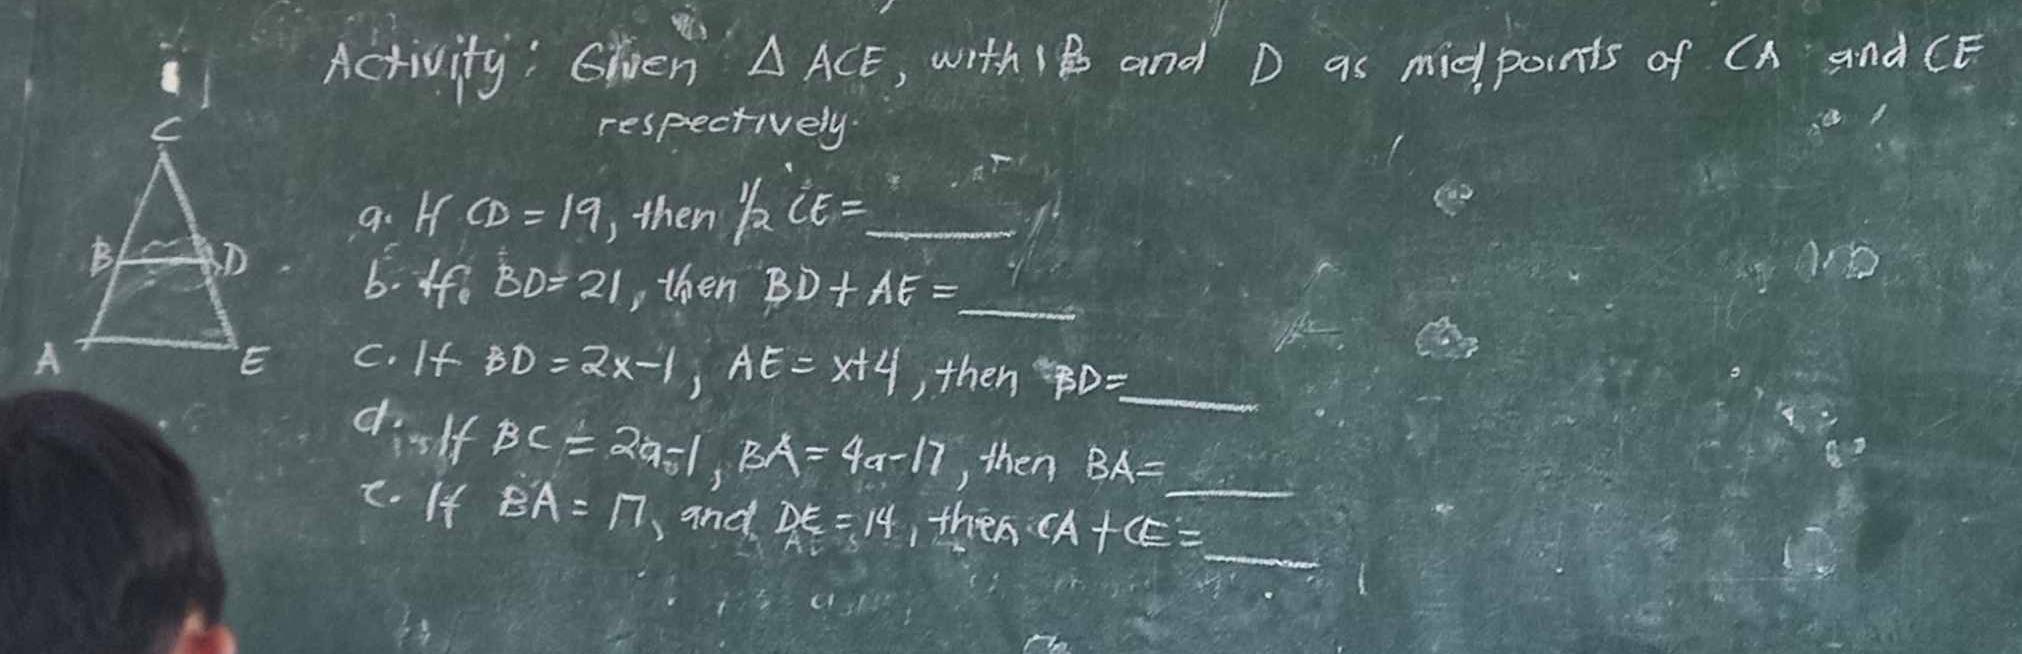 Activity: Given △ ACE, with B and D as midpoints of CA and CE
respectively.
C
B
D
A
E
a. If CD = 19, then 1/2 CE = ____
b. If BD = 21, then BD + AE = ____
c. If BD = 2x-1, AE = x+4, then BD = ____
d. If BC = 2a-1, BA = 4a-17, then BA = ____
e. If BA = 17, and DE = 14, then CA + CE = ____